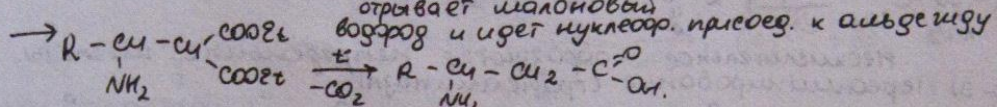 отрывает малоновый
водород и идет нуклеоф. присоед. к альдегиду
→ R - CH - CH COOEt
COOEt
NH2
t
-CO2
→ R - CH - CH2 - C =O
-OH.
NH2